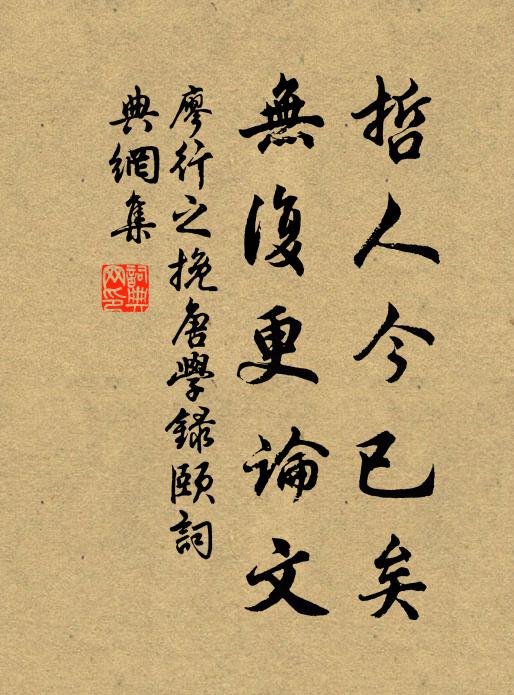 哲人今已矣
無復更論文
廖行之挽唐學錄頤詞
典網集
詞典
网印